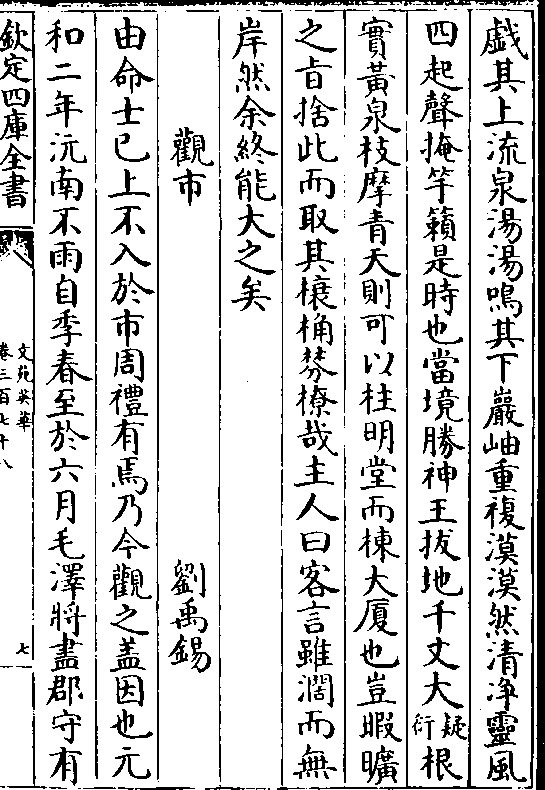 戯其上流泉湯湯鳴其下巖岫重複漠漠然清浄靈風
四起聲掩竽籟是時也當境勝神王拔地千丈大疑衍根
實黃泉枝摩青天則可以柱明堂而棟大厦也豈暇曠
之㫖捨此而取其榱桷棼橑哉主人曰客言雖濶而無
岸然余終能大之矣
觀市 劉禹錫
由命士已上不入於市周禮有焉乃今觀之盖因也元
和二年沅南不雨自季春至於六月毛澤將盡郡守有
欽定四庫全書
文苑英華
卷三百七十八
七